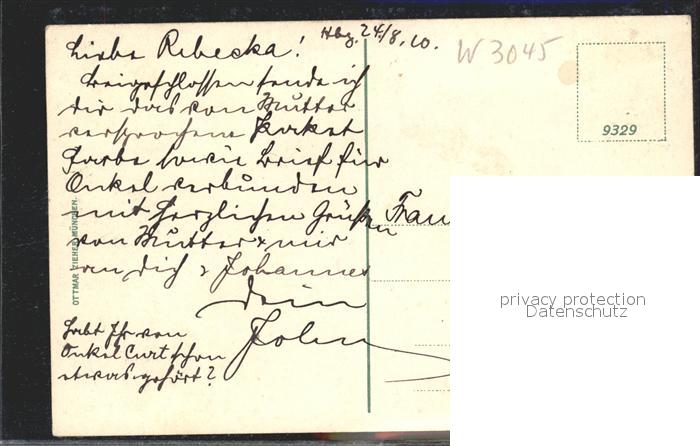 Hbg. 24/8. 10.
W 3045
Liebe Rebecka!
Beigeschlossen sende ich
dir das von Mutter
versprochene Paket
Farbe sowie Brief für
Onkel verbunden
mit herzlichen Grüßen
von Mutter & mir
an dich & Johannes
Dein
John
Habt Ihr von
Onkel Curt schon
etwas gehört?
OTTMAR ZIEHER, MÜNCHEN.
9329
Frau
privacy protection
Datenschutz